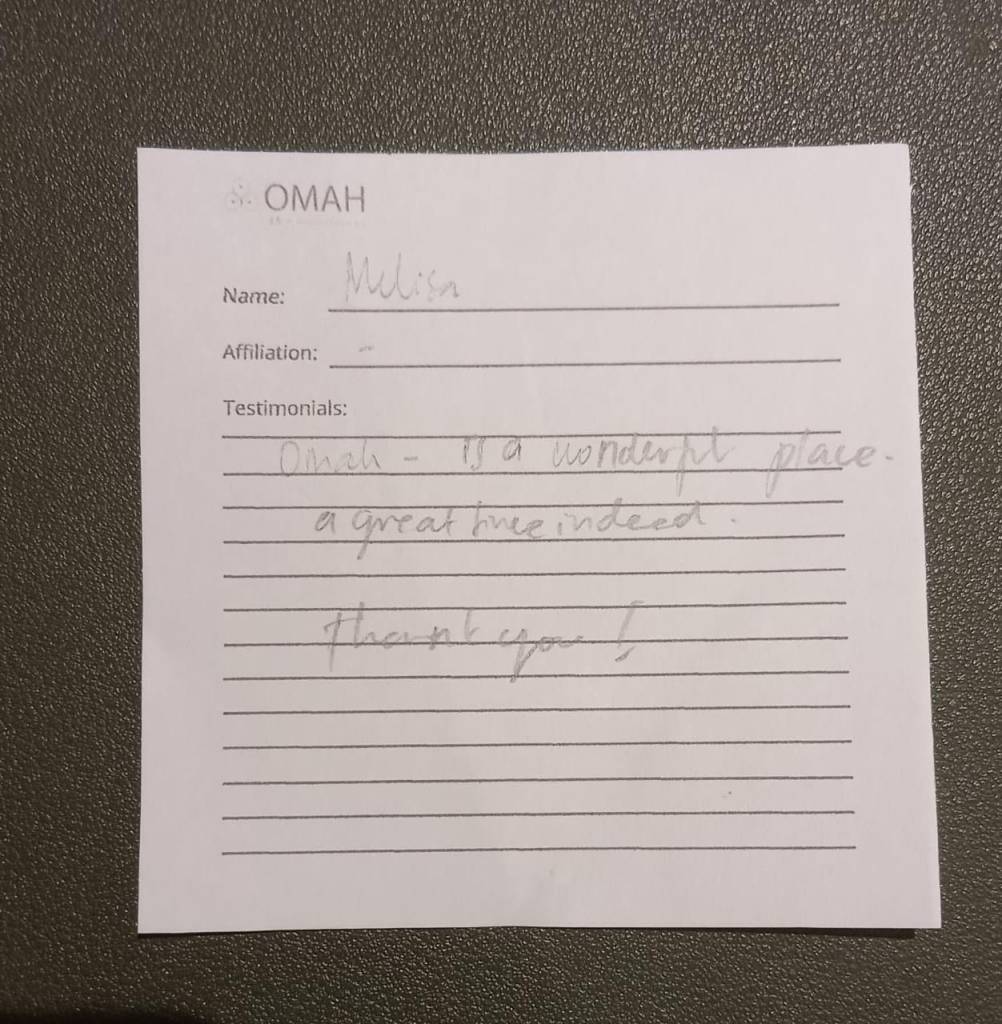 OMAH
Name: Melisa
Affiliation: -
Testimonials:
Omah - is a wonderful place.
a great time indeed.
Thank you!